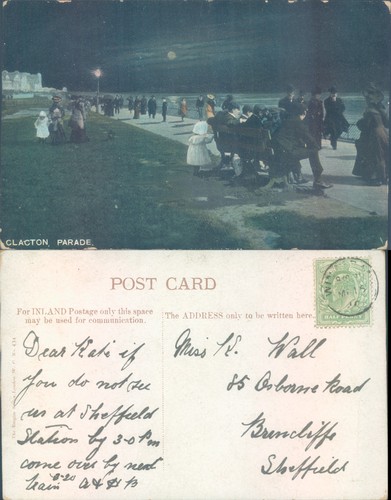 CLACTON PARADE
POST CARD
For INLAND Postage only this space
may be used for communication.
The ADDRESS only to be written here.
Dear Kate if
you do not see
us at Sheffield
Station by 3-0 Pm
come over by next
train 3-20 A & H B
Miss K. Wall
85 Osborne Road
Brincliffe
Sheffield